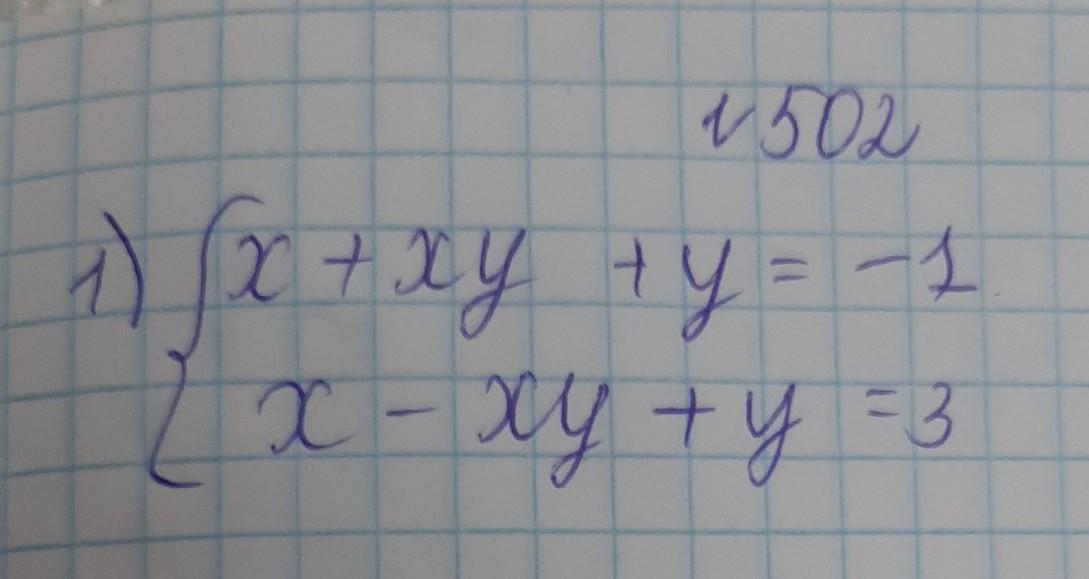 №502
1) { x + xy + y = -1
x - xy + y = 3